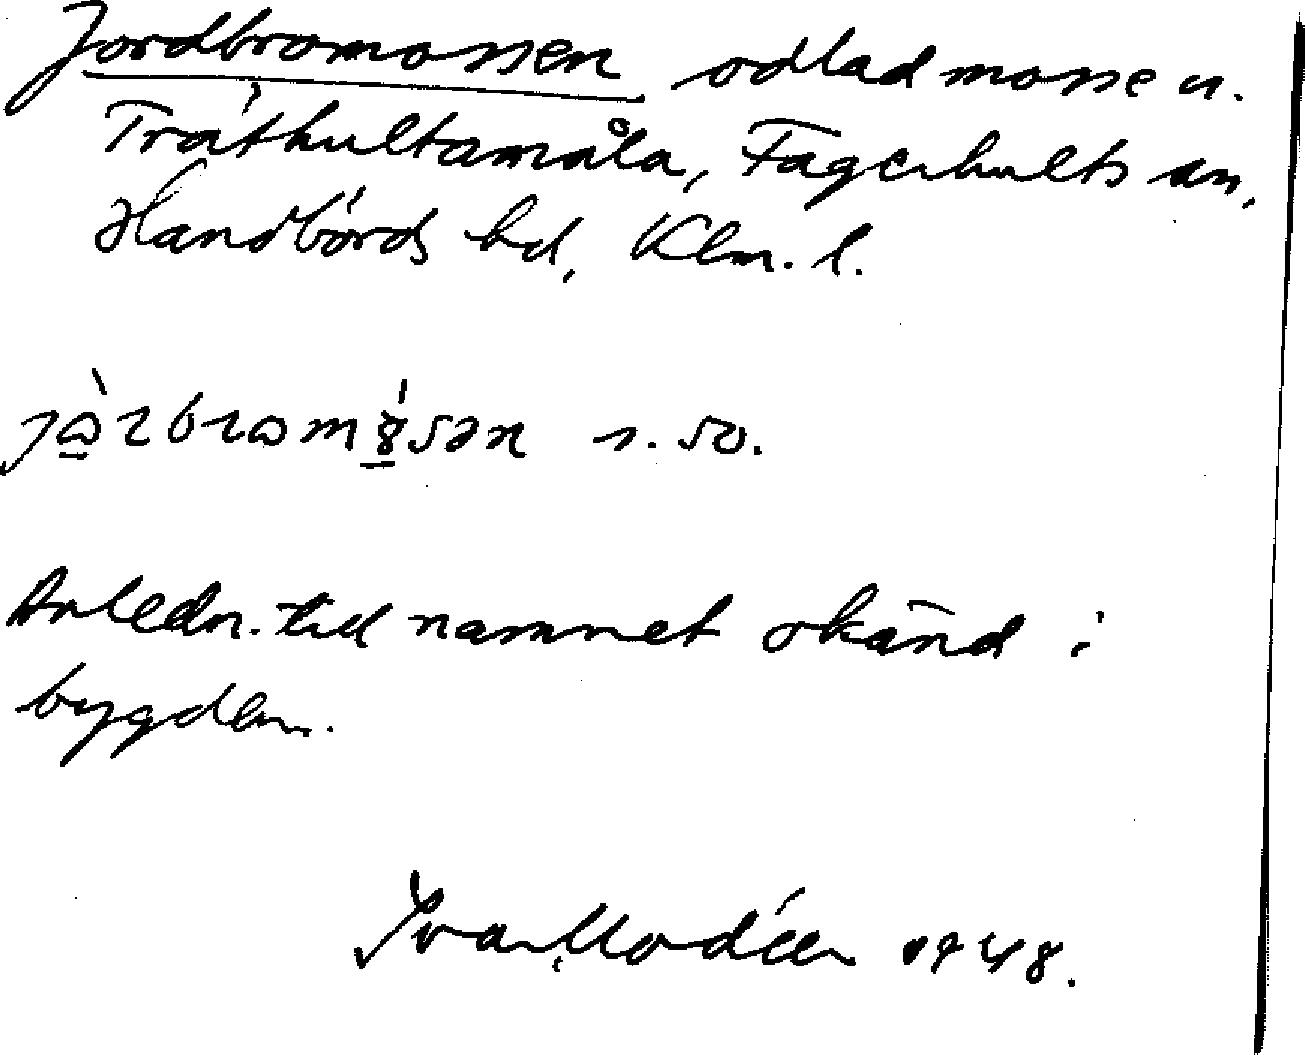 Jordbromossen odlad mosse u.
Träthultamåla, Fagerhults sn,
Handbörds hd, Klm. l.
s. so.
Anledn. till namnet okänd i
bygden.
Ivar Modéer 1948.